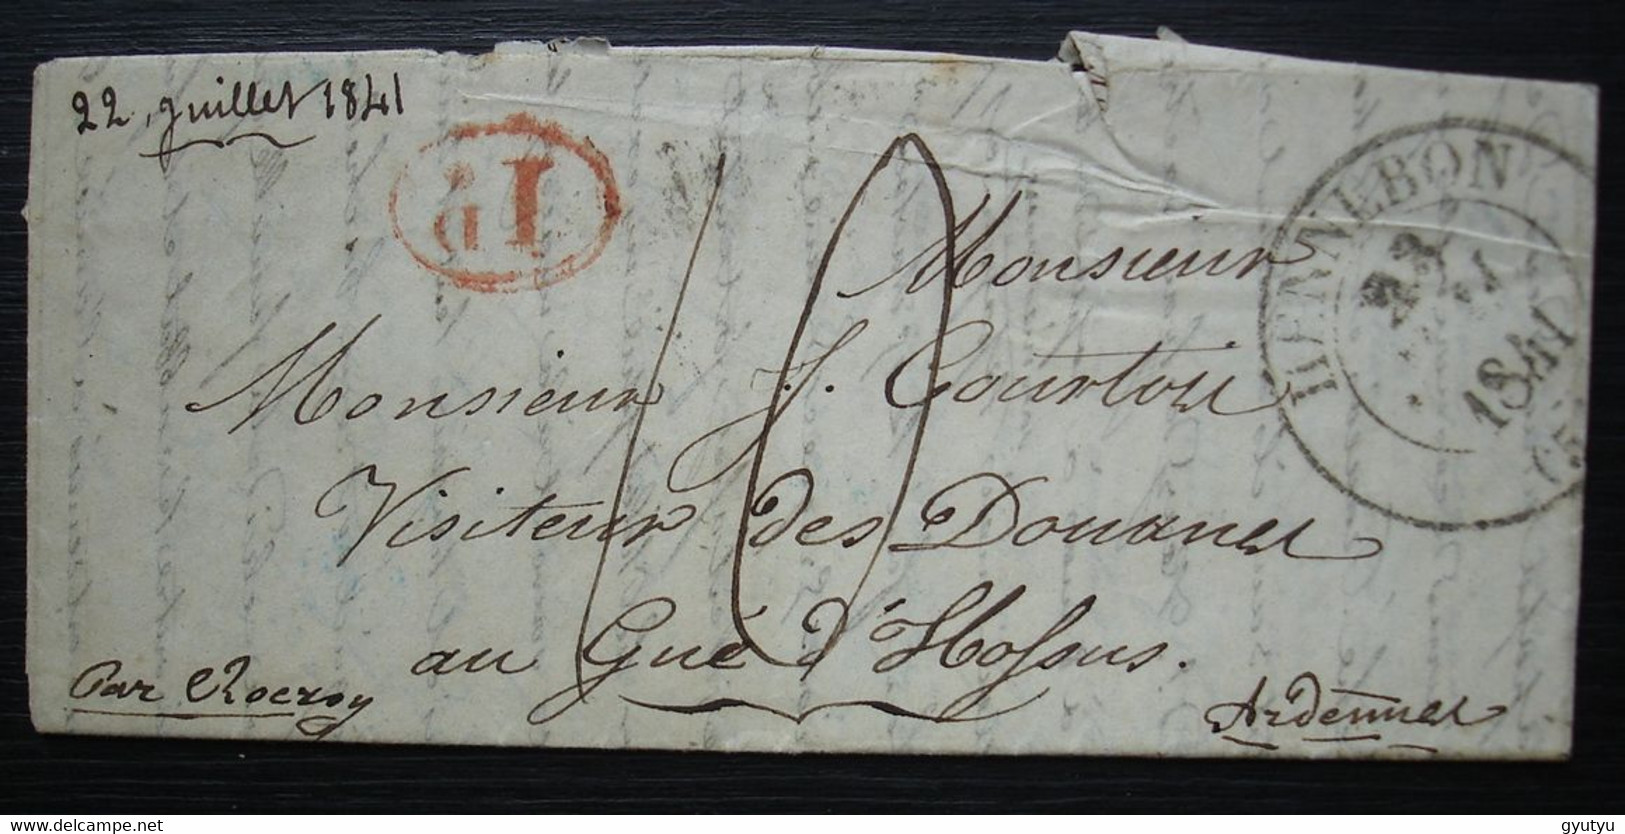 22 juillet 1841
1 D
HENNEBON
23
1841
Monsieur
Monsieur J. Courtois
Visiteur des Douanes
au Gué d'Hossus.
Par Rocroy
Ardennes
10
gyutyu